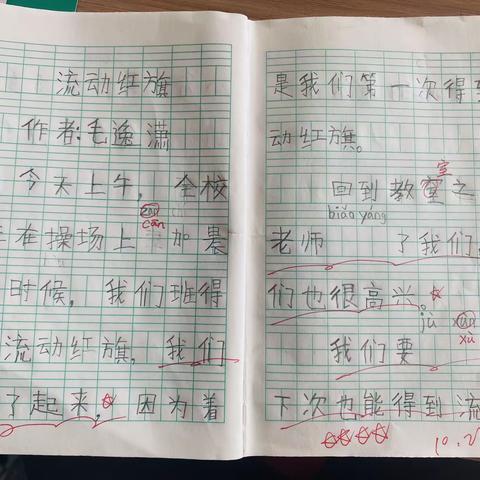 流动红旗
作者:毛逸潇
今天上午，全校
cān
在操场上 加晨
时候，我们班得
流动红旗，我们
了起来，因为着
是我们第一次得到
动红旗。
室
回到教室之
biǎo yáng
老师 了我们，
们也很高兴。
jù xù
我们要
下次也能得到流